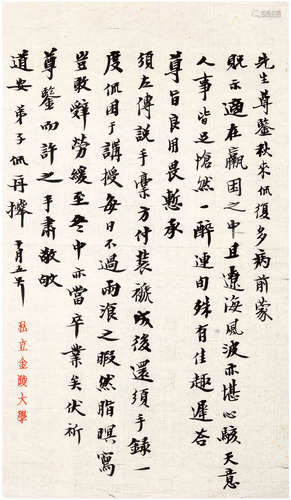 先生尊鑒秋來侃復多病前蒙
貺示適在羸困之中且遼海風波亦堪心駭天意
人事皆足愴然一醉連旬殊有佳趣遲答
尊旨良用畏慙承
須左傳說手稾方付裝褫成後還須手錄一
度侃困于講授每日不過兩之暇然脂暝寫
豈敢辭勞緩至冬中亦當卒業矣伏祈
尊鑒而許之手肅敬敂
道安 弟子侃再拜 月五号
私立金陵大學